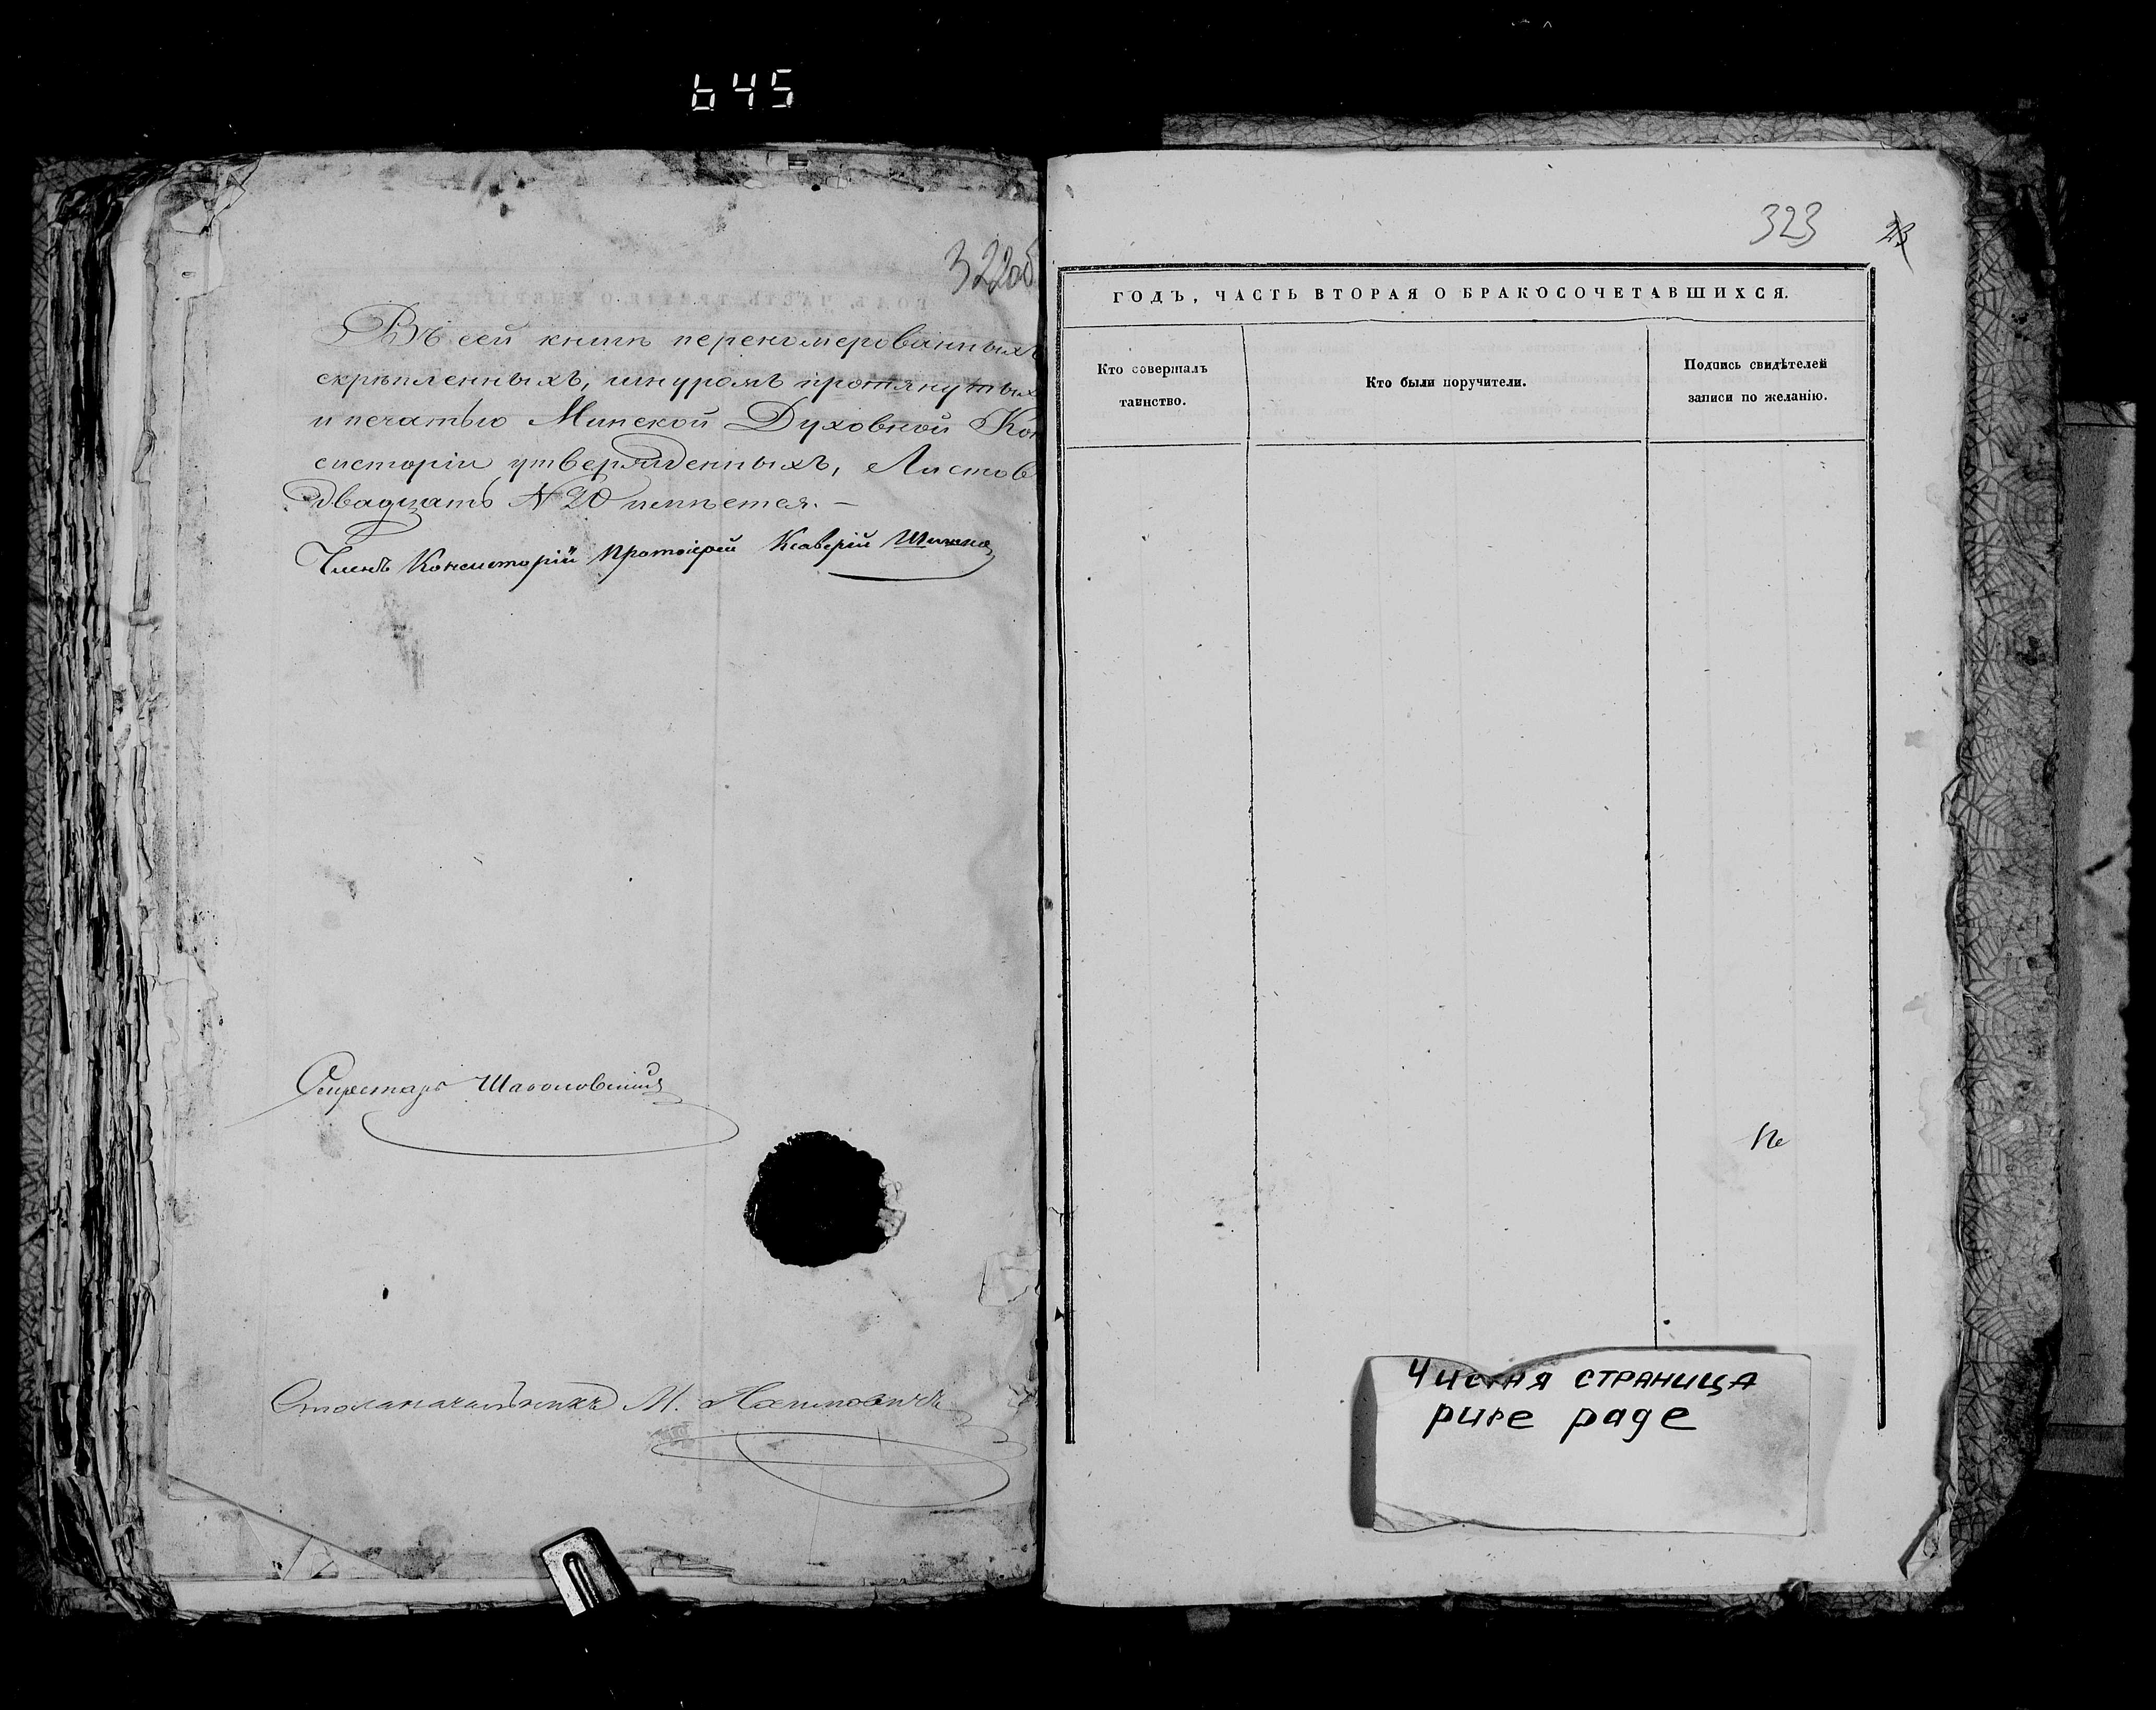 645
322об
Въ сей книгѣ перенумерованныхъ
скрѣпленныхъ, шнуромъ протянутых
и печатью Минской Духовной Кон
систоріи утвержденныхъ, Листов
двадцать № 20 имѣется. —
Членъ Консисторіи Протоіерей Ксаверій
Секретарь
Столоначальникъ М.
323
23
ГОДЪ, ЧАСТЬ ВТОРАЯ О БРАКОСОЧЕТАВШИХСЯ.
Кто совершалъ
таинство.
Кто были поручители.
Подпись свидѣтелей
записи по желанію.
Чистая страница
pure page